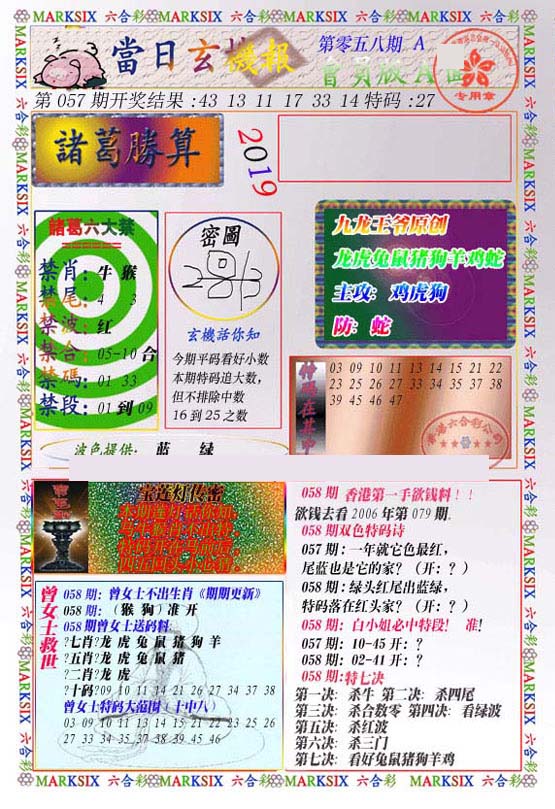 MARKSIX 六合彩 MARKSIX 六合彩 MARKSIX 六合彩 MARKSIX 六合彩
當日玄機报
第零五八期 A
會員版A面
专用章
第 057 期开奖结果:43 13 11 17 33 14 特码:27
諸葛勝算
2019
諸葛六大禁
禁肖: 牛 猴
禁尾: 4 3
禁波: 红
禁合: 05-10 合
禁碼: 01 33
禁段: 01 到 09
密圖
玄機話你知
今期平码看好小数
本期特码追大数,
但不排除中数
16 到 25 之数
九龙王爷原创
龙虎兔鼠猪狗羊鸡蛇
主攻: 鸡虎狗
防: 蛇
03 09 10 11 13 14 15 21 22
23 25 26 27 33 34 35 37 38
39 45 46 47
波色提供: 蓝 绿
宝莲灯传密
曾女士救世
058 期: 曾女士不出生肖《期期更新》
058 期: (猴 狗) 准 开
058 期曾女士送码料:
?七肖?龙 虎 兔 鼠 猪 狗 羊
?五肖?龙 虎 兔 鼠 猪
?二肖?龙 虎
?十码?09 10 11 14 21 26 27 34 37 38
曾女士特码大范围 (十中八)
03 09 10 11 13 14 15 21 22 23 25 26
27 33 34 35 37 38 39 45 46
058 期 香港第一手欲钱料!!
欲钱去看 2006 年第 079 期.
058 期双色特码诗
057 期: 一年就它色最红,
尾蓝也是它的家? (开: ?)
058 期: 绿头红尾出蓝绿,
特码落在红头家? (开: ?)
058 期: 白小姐必中特段! 准!
057 期: 10-45 开: ?
058 期: 02-41 开: ?
058 期: 特七决
第一决: 杀牛 第二决: 杀四尾
第三决: 杀合数零 第四决: 看绿波
第五决: 杀红波
第六决: 杀三门
第七决: 看好兔鼠猪狗羊鸡
MARKSIX 六合彩 MARKSIX 六合彩 MARKSIX 六合彩 MARKSIX 六合彩